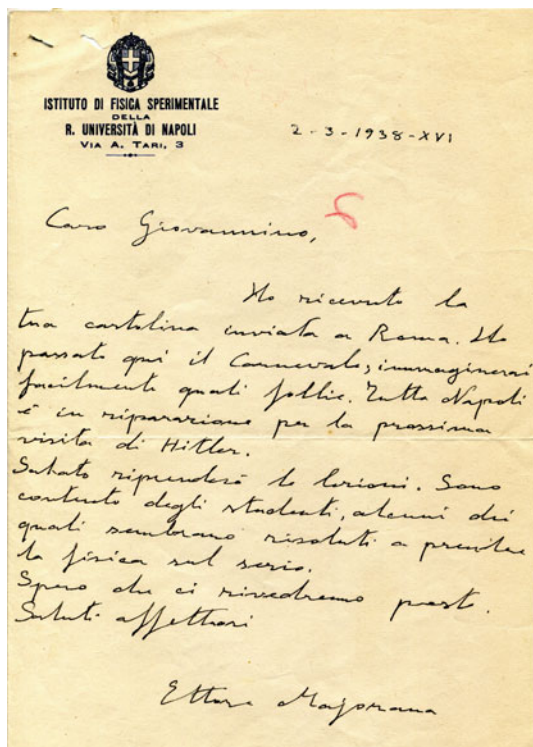 ISTITUTO DI FISICA SPERIMENTALE
DELLA
R. UNIVERSITÀ DI NAPOLI
VIA A. TARI, 3
2-3-1938-XVI
Caro Giovannino,
Ho ricevuto la
tua cartolina inviata a Roma. Ho
passato qui il Carnevale; immaginerai
facilmente quali follie. Tutta Napoli
è in riparazione per la prossima
visita di Hitler.
Sabato riprenderò le lezioni. Sono
contento degli studenti, alcuni dei
quali sembrano risoluti a prendere
la fisica sul serio.
Spero che ci rivedremo presto.
Saluti affettuosi
Ettore Majorana